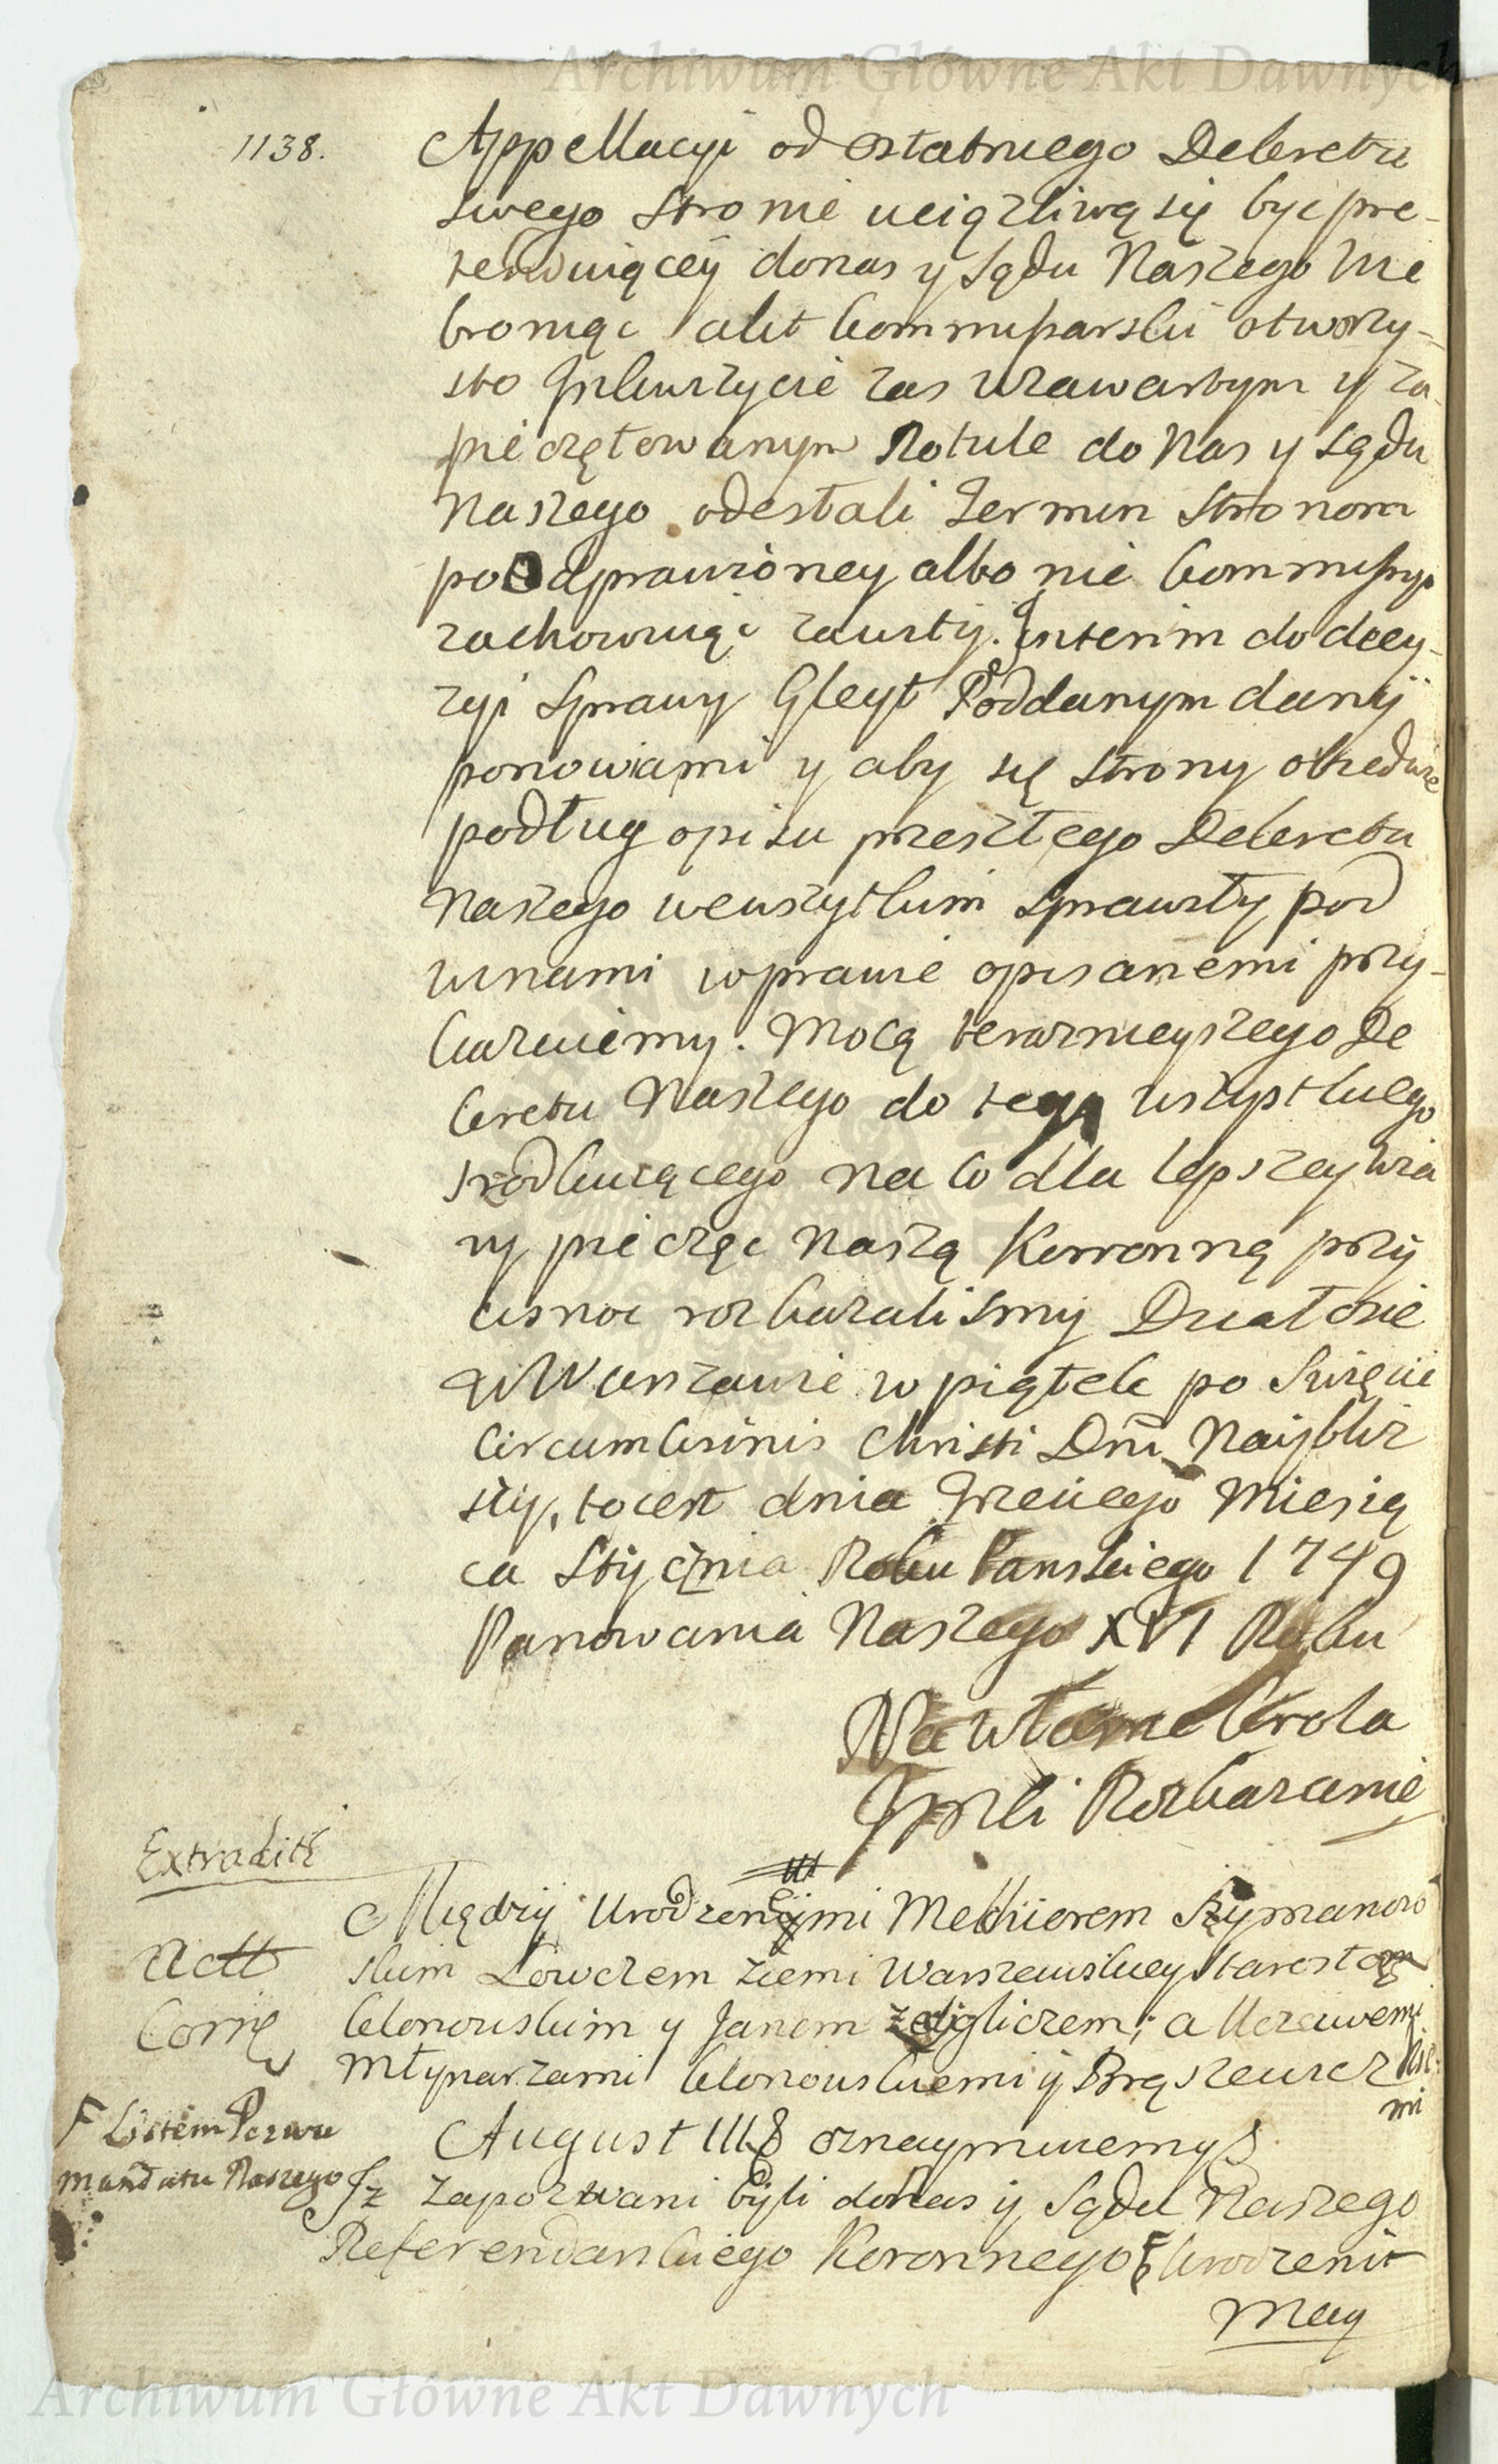 Archiwum Główne Akt Dawnych
1138.
Appellacyi od ostatniego Dekretu
swego stronie uciążliwą się byc pre-
tenduiącey donas y sądu Naszego nie
broniąc akt kommissarski otworzy-
sto Inkwizycie zas wzawartym y za-
pieczętowanym Rotule do Nas y sądu
Naszego odestali Termin stronom
po odprawioney albo nie kommissyi
zachowuiąc zawity. Interim do decy-
zyi sprawy Gleyt Poddanym dany
ponowiami y aby się strony obiedwie
podług opisu przeszłego Dekretu
Naszego wewszytkim sprawiły pod
winami wprawie opisanemi przy-
kazuiemy. Mocą teraznieyszego De
kretu Naszego do tego wszystkiego
srodkuiącego na co dla lepszey wia
ry pieczęc Naszą Koronną przy
cisnoc rozkazalismy Działo sie
w Warszawie w piątek po Swięcie
Circumcisinis Christi Dni Naybliz
szy, to iest dnia Trzeciego Miesią
ca Stycznia Roku Panskiego 1749
Panowania Naszego XVI Roku
Na własne Krola
Jmsci Rozkazanie
Extradite
Między Urodzonymi Melchierem Szymanow
skim Łowczem Ziemi Warszewskiey Starostą
Klonowskim y Janem a Uczciwemi
Młynarzami Klonowskiemi y Brąszewick
mi
Actt
Corrig
August III oznaymuiemy
F Listem Pozwu
mandatu Naszego
Jz Zapozwani byli donas y Sądu Naszego
Referendarskiego Koronnego F Urodzeni
May
Archiwum Główne Akt Dawnych